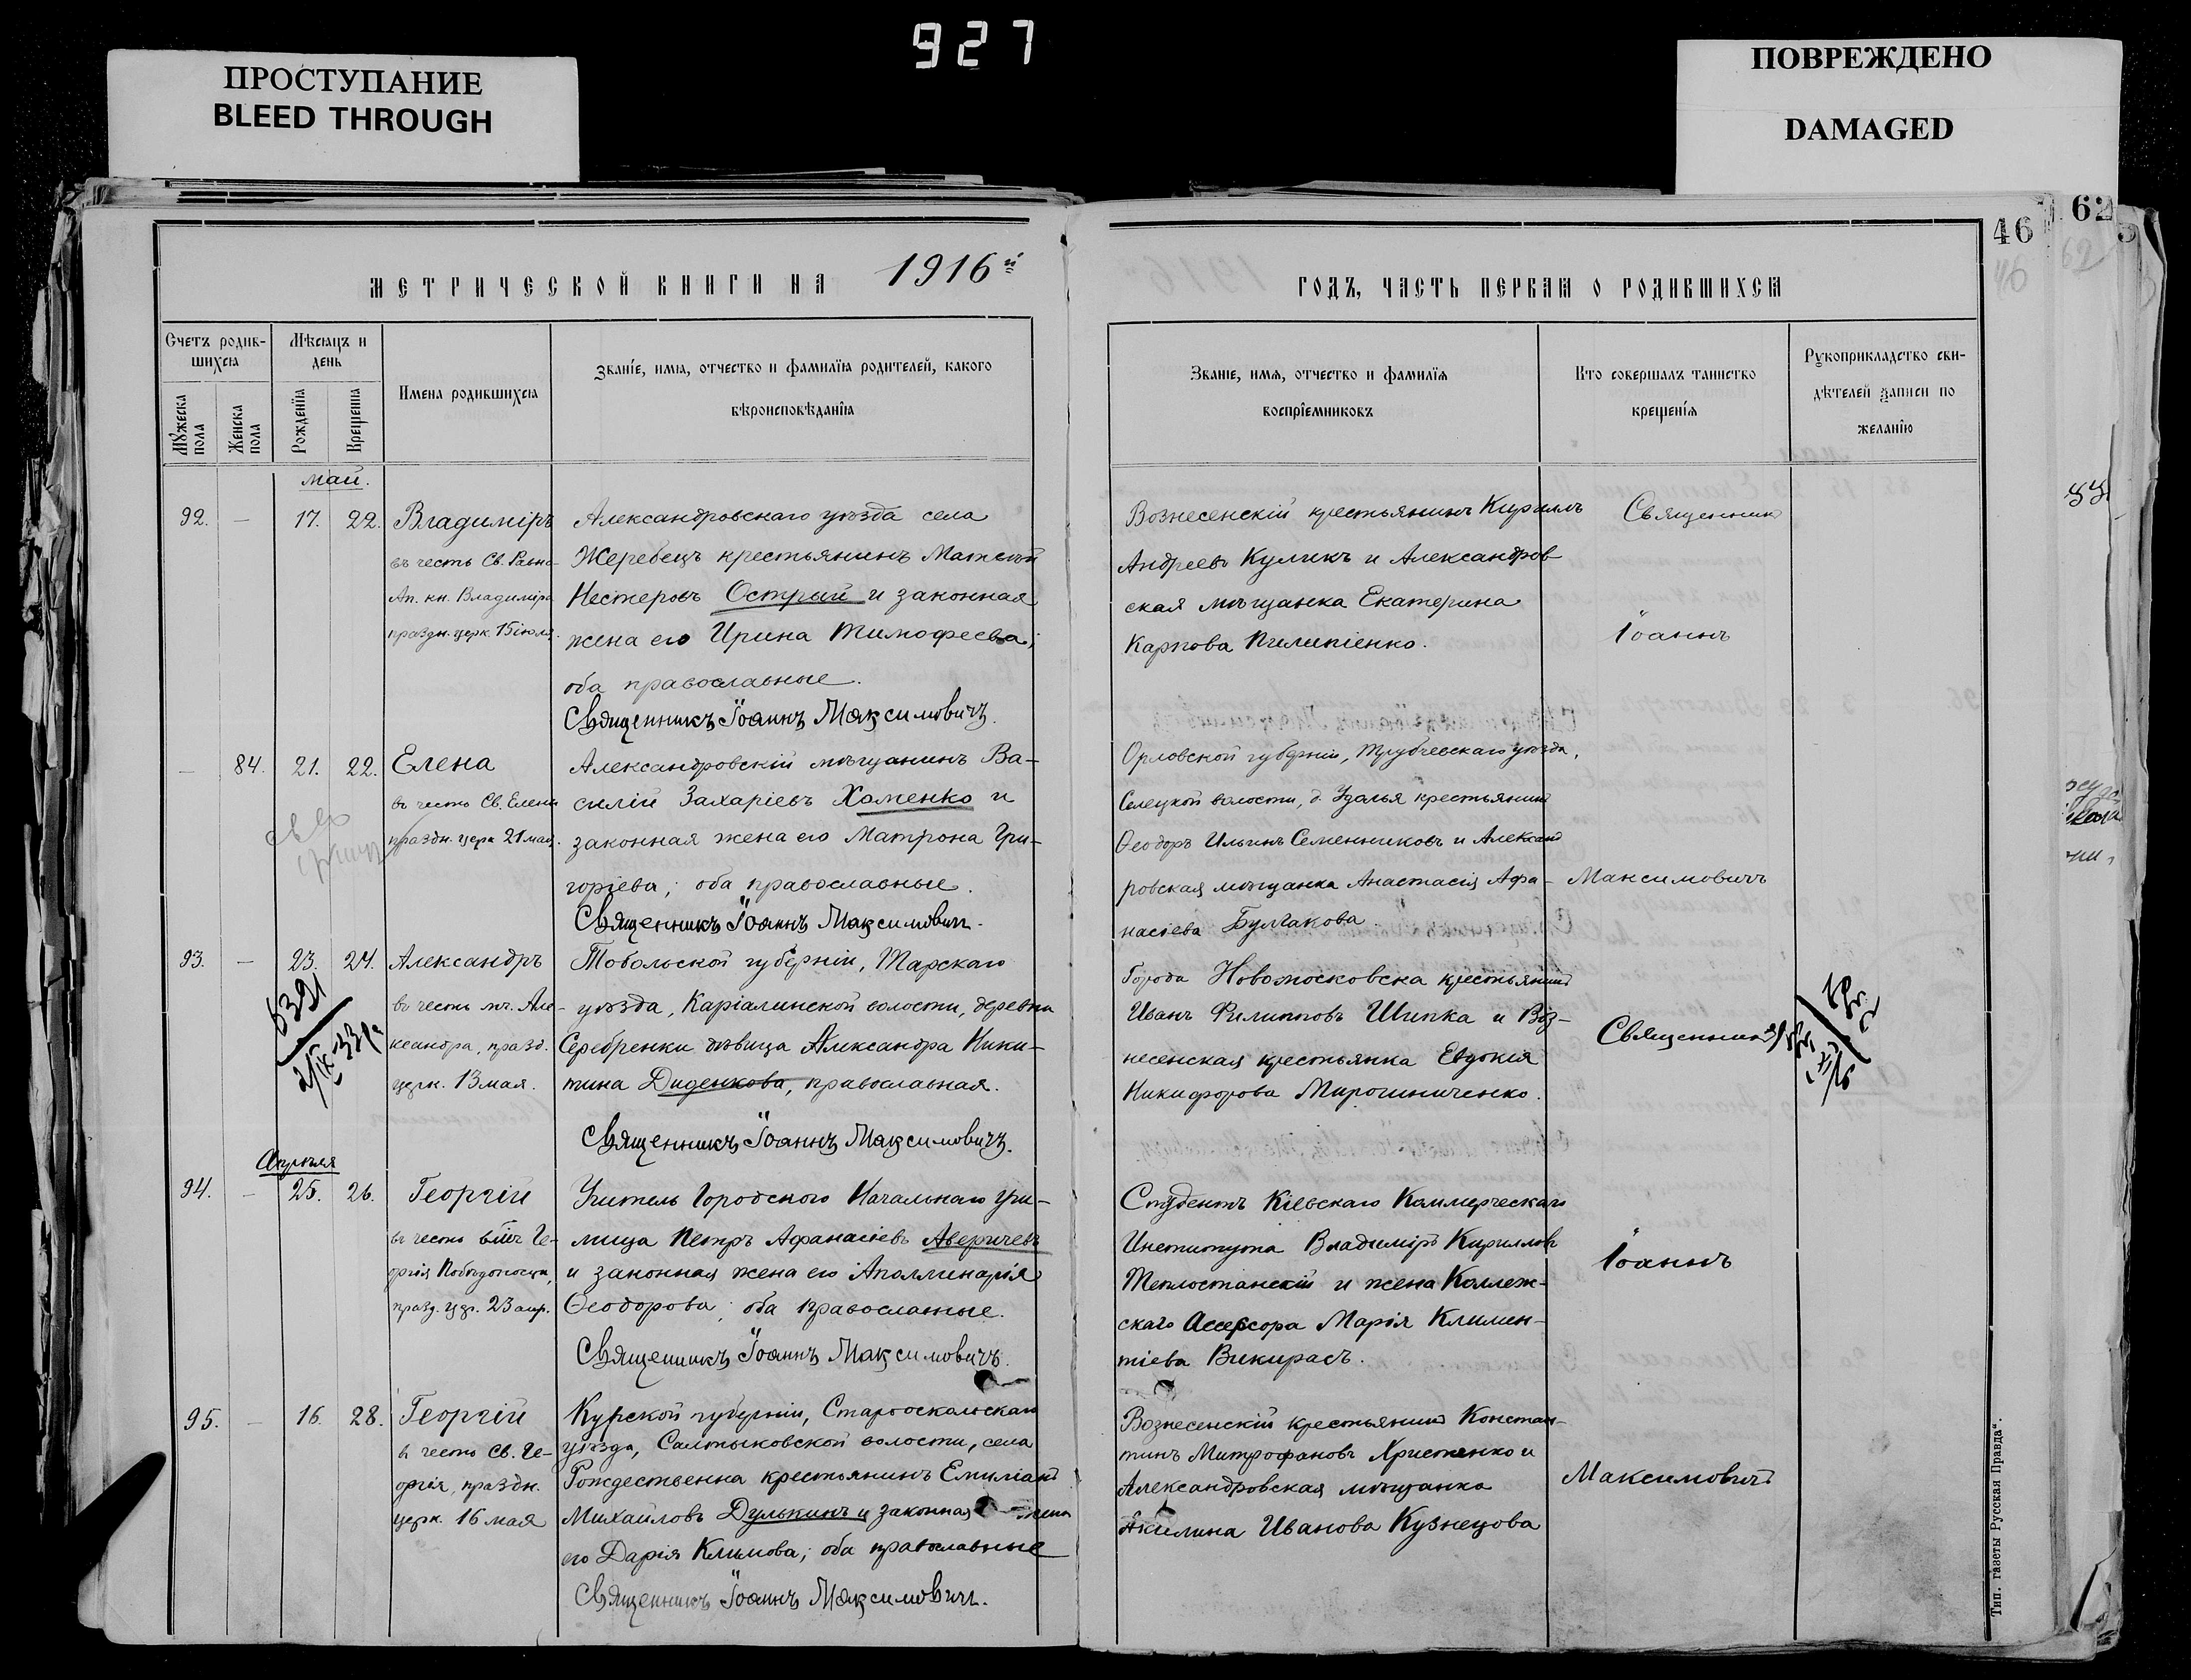 927
ПРОСТУПАНИЕ
BLEED THROUGH
ПОВРЕЖДЕНО
DAMAGED
46
62
МЕТРИЧЕСКОЙ КНИГИ НА 1916й
ГОДЪ, ЧАСТЬ ПЕРВАЯ О РОДИВШИХСЯ
Счетъ родив-
шихся
Мужеска пола
Женска пола
Мѣсяцъ и
день
Рожденія
Крещенія
Имена родившихся
Званіе, имя, отчество и фамилія родителей, какого
вѣроисповѣданія
Званіе, имя, отчество и фамилія
воспріемниковъ
Кто совершалъ таинство
крещенія
Рукоприкладство сви-
дѣтелей записи по
желанію
Май.
92. — 17. 22.
Владиміръ
въ честь Св. Равно-
Ап. кн. Владиміра
праздн. церк. 15 іюля.
Александровскаго уѣзда села
Жеребецъ крестьянинъ Матѳій
Нестеровъ Острый и законная
жена его Ирина Тимофеева;
оба православные.
Священникъ Іоаннъ Максимовичъ.
Вознесенскій крестьянинъ Кириллъ
Андреевъ Куликъ и Александров
ская мѣщанка Екатерина
Карпова Пилипіенко.
Священник
Іоаннъ
— 84. 21. 22.
Елена
въ честь Св. Елены
праздн. церк 21 мая.
Александровскій мѣщанинъ Ва-
силій Захаріевъ Хоменко и
законная жена его Матрона Гри-
горіева; оба православные.
Священникъ Іоаннъ Максимович.
Орловской губерніи, Трубчевскаго уѣзда,
Селецкой волости, д. Удалья крестьянинъ
Ѳеодоръ Ильинъ Семенниковъ и Александ
ровская мѣщанка Анастасія Афа-
насіева Булгакова
Максимовичъ
93. — 23. 24.
Александръ
въ честь мч. Але-
ксандра, празд.
церк. 13 мая.
Тобольской губерніи, Тарскаго
уѣзда, Карталинской волости, деревни
Серебренки дѣвица Александра Ники-
тина Диденкова, православная.
Священникъ Іоаннъ Максимовичъ.
Города Новомосковска крестьянинъ
Иванъ Филипповъ Шипка и Воз-
несенская крестьянка Евдокія
Никифорова Мирошниченко.
Священник
6391
2/IX-33 г.
Апрѣля
94. — 25. 26.
Георгій
въ честь вмч. Ге-
оргія Побѣдоносца,
празд. цер. 23 апр.
Учитель Городского Начальнаго Учи-
лища Петръ Афанасіевъ Аверичевъ
и законная жена его Аполлинарія
Ѳеодорова; оба православные.
Священникъ Іоаннъ Максимовичъ.
Студентъ Кіевскаго Коммерческаго
Института Владиміръ Кирилловъ
Теплостанскій и жена Коллеж-
скаго Ассесора Марія Климен-
тіева Викирасъ.
Іоаннъ
95. — 16. 28.
Георгій
въ честь Св. Ге-
оргія, праздн.
церк. 16 мая
Курской губерніи, Старооскольскаго
уѣзда, Салтыковской волости, села
Рождественна крестьянинъ Емиліанъ
Михаиловъ Дулькинъ и законная жена
его Дарія Климова; оба православные
Священникъ Іоаннъ Максимович.
Вознесенскій крестьянинъ Констан-
тинъ Митрофановъ Христенко и
Александровская мѣщанка
Акилина Иванова Кузнецова
Максимовичъ
Тип. газеты Русская Правда".